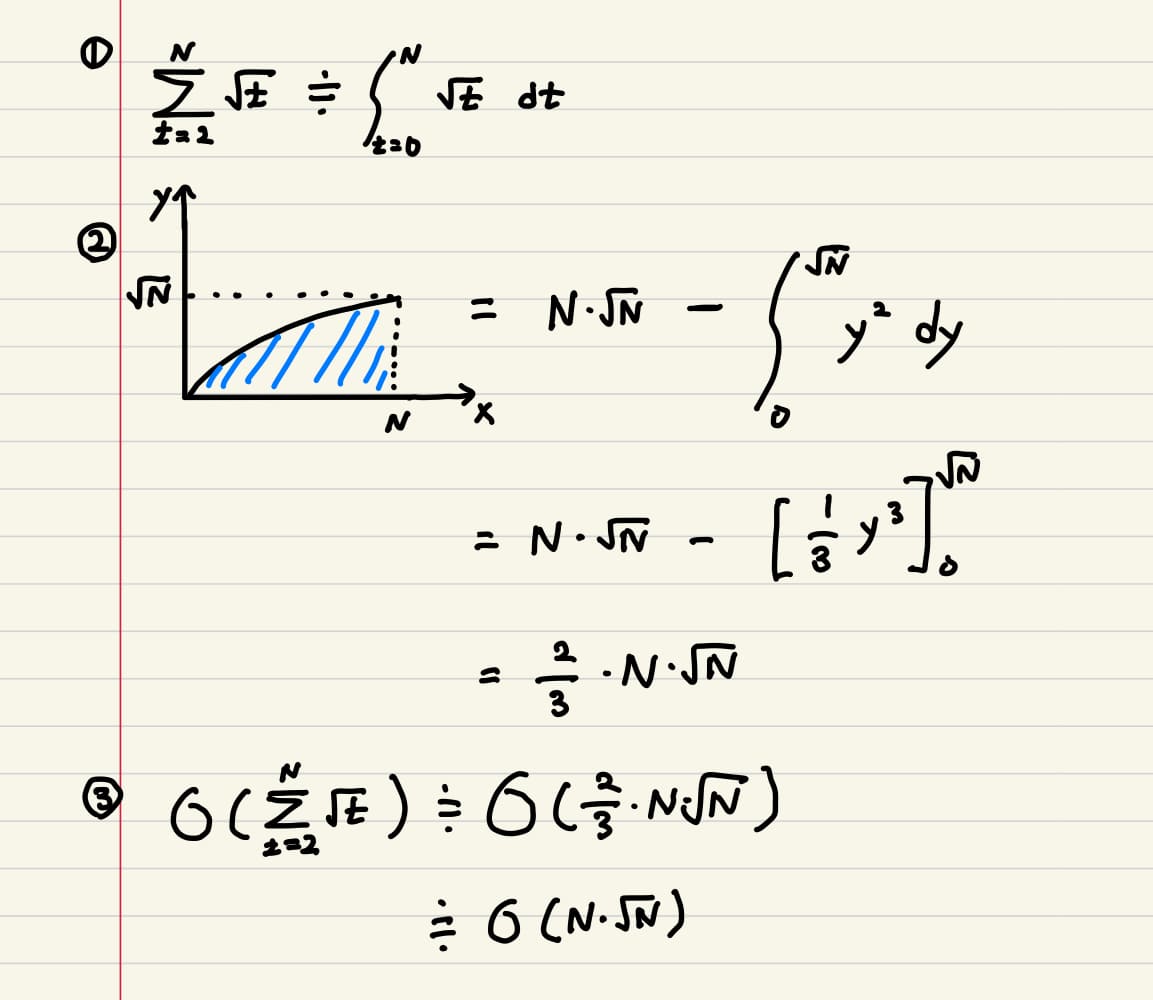 ① ∑_{t=2}^{N} √t ≒ ∫_{t=0}^{N} √t dt
②
y
√N
N
x
= N·√N - ∫_{0}^{√N} y² dy
= N·√N - [1/3 y³]_{0}^{√N}
= 2/3 ·N·√N
③ O(∑_{t=2}^{N} √t) ≒ O(2/3·N·√N)
≒ O(N·√N)